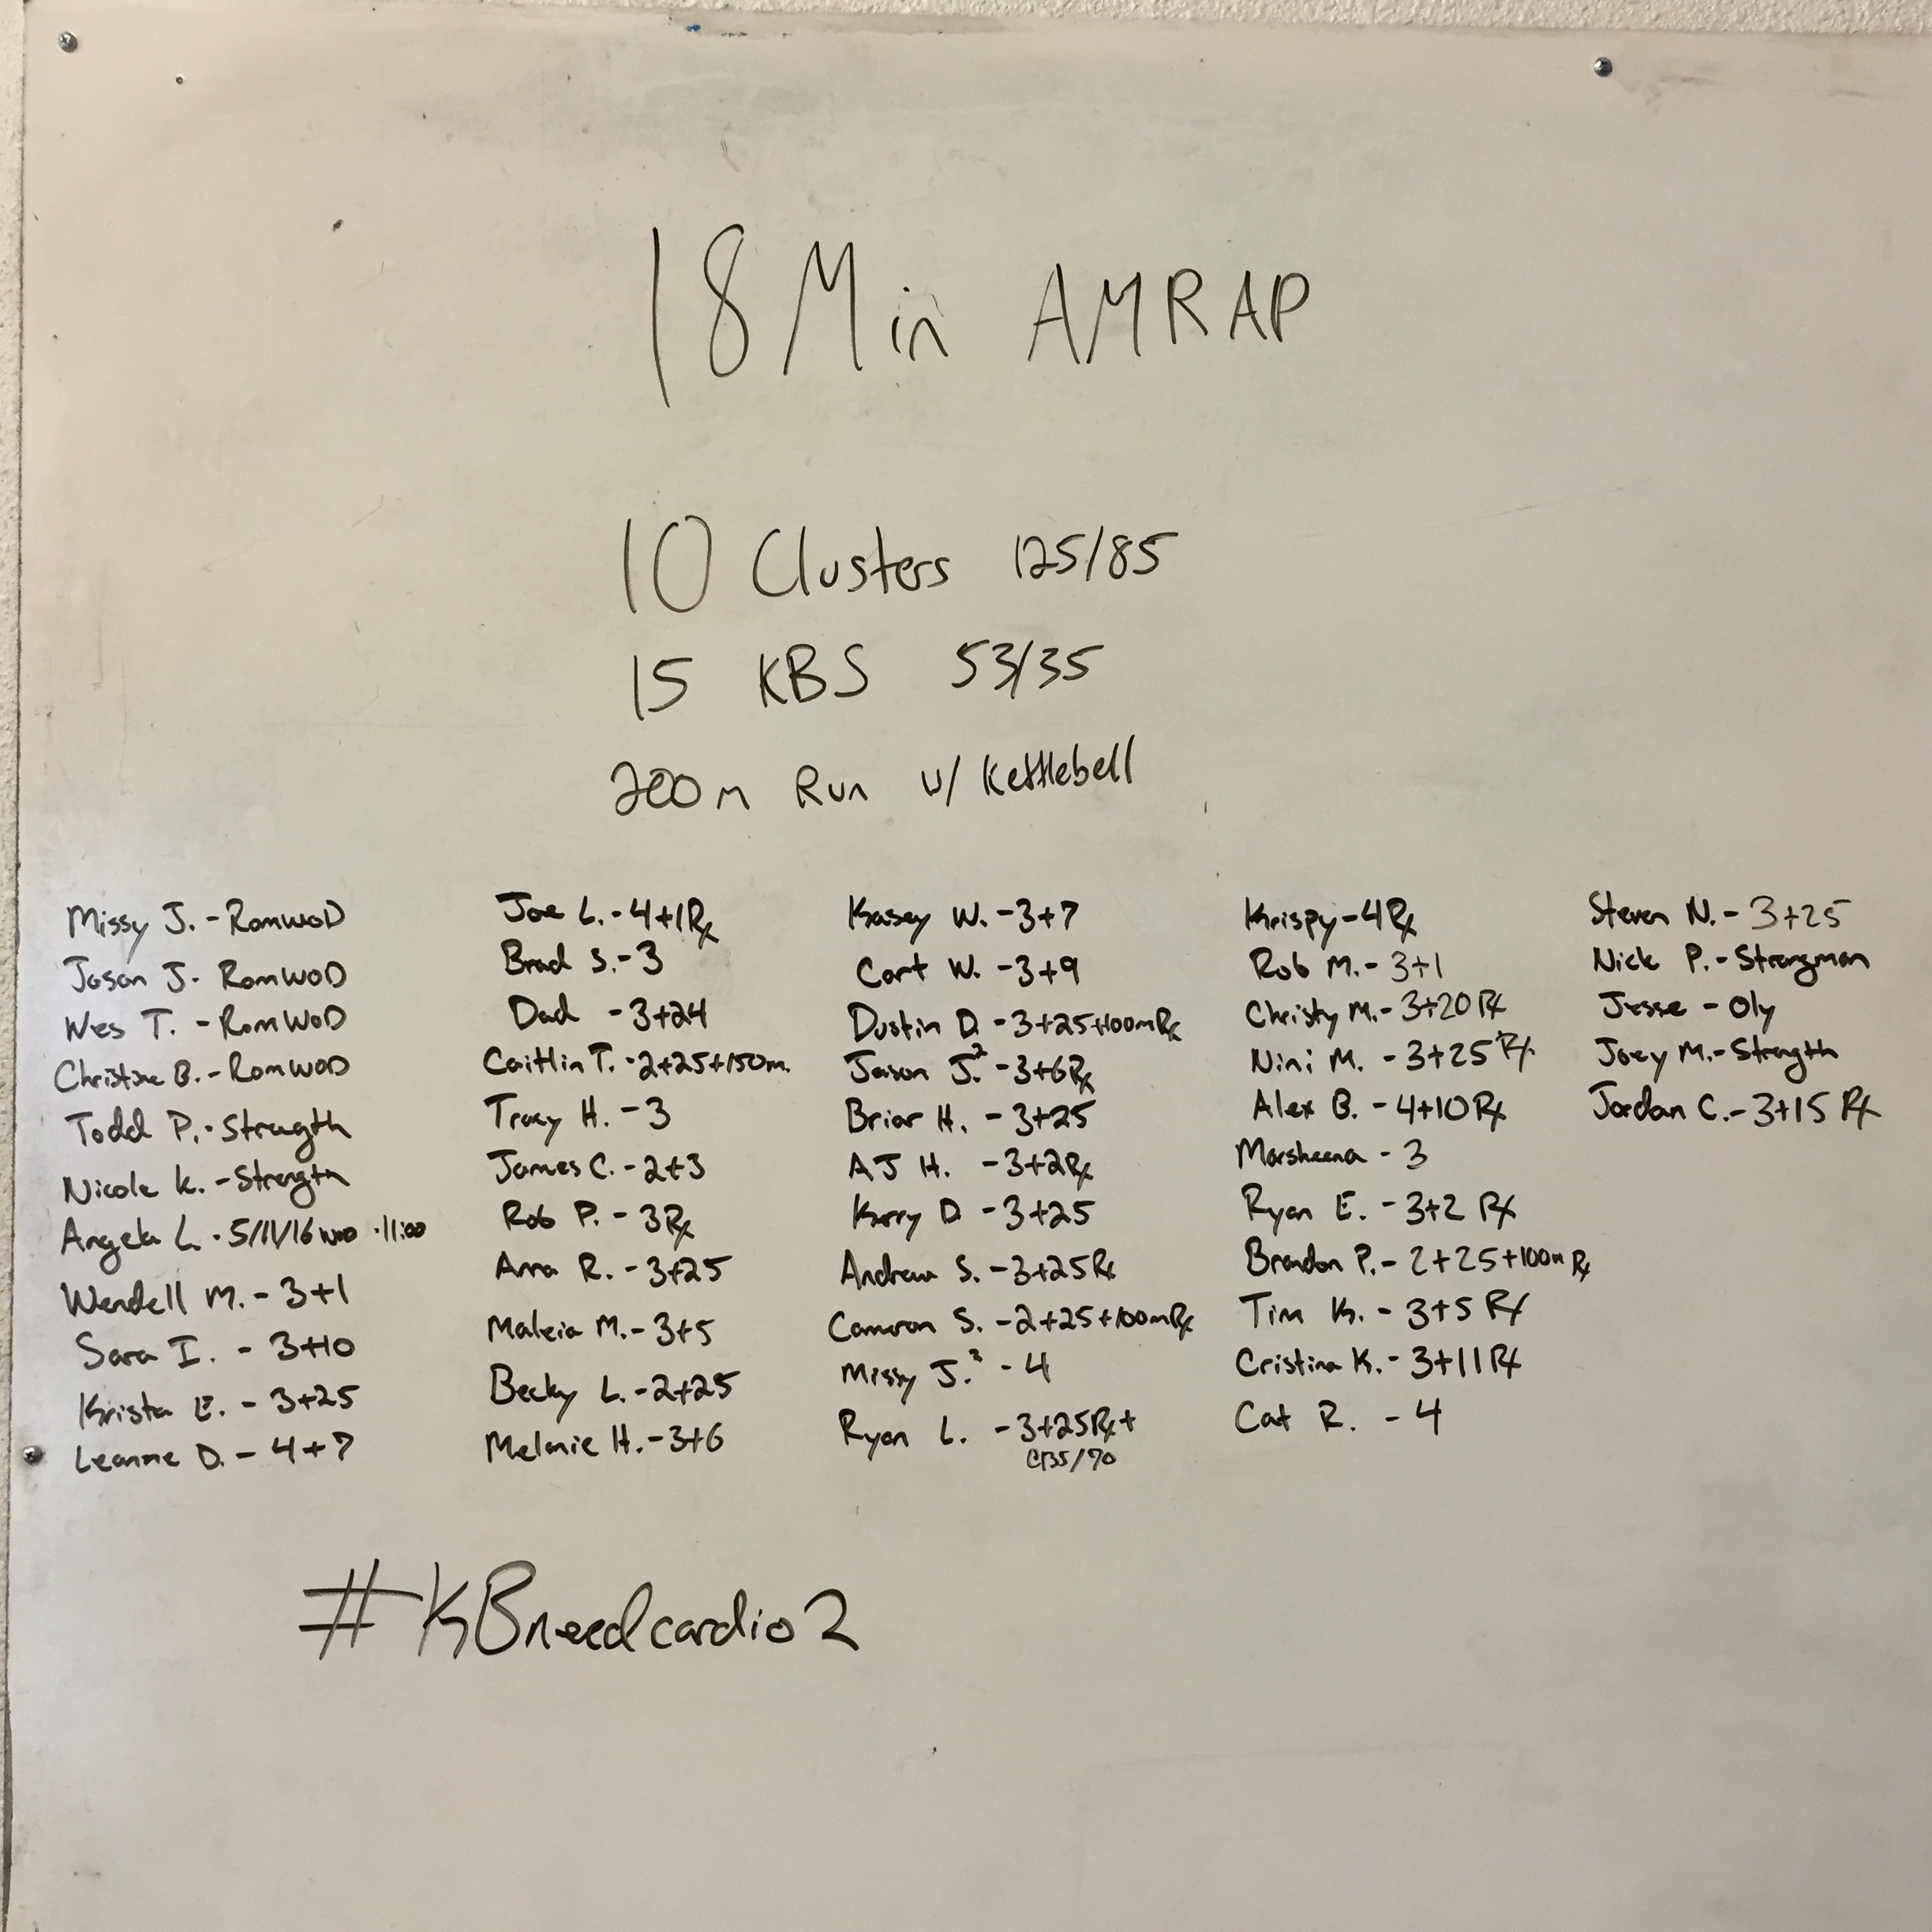 18 Min AMRAP
10 Clusters 125/85
15 KBS 53/35
200m Run w/ Kettlebell
Missy J. - RomWoD
Jason J. - RomWoD
Wes T. - RomWoD
Christine B. - RomWoD
Todd P. - Strength
Nicole K. - Strength
Angela L. - 5/11/16 WOD - 11:00
Wendell M. - 3+1
Sara I. - 3+10
Krista E. - 3+25
Leanne D. - 4+7
Joe L. - 4+1 Rx
Brad S. - 3
Dad - 3+24
Caitlin T. - 2+25+150m.
Tracy H. - 3
James C. - 2+3
Rob P. - 3 Rx
Anna R. - 3+25
Maleia M. - 3+5
Becky L. - 2+25
Melanie H. - 3+6
Kasey W. - 3+7
Cort W. - 3+9
Dustin D. - 3+25+100m Rx
Jason J.² - 3+6 Rx
Briar H. - 3+25
AJ H. - 3+2 Rx
Korry D. - 3+25
Andrew S. - 3+25 Rx
Cameron S. - 2+25+100m Rx
Missy J.² - 4
Ryan L. - 3+25 Rx+
C135/70
Krispy - 4 Rx
Rob M. - 3+1
Christy M. - 3+20 Rx
Nini M. - 3+25 Rx
Alex B. - 4+10 Rx
Marsheena - 3
Ryan E. - 3+2 Rx
Brandon P. - 2+25+100m Rx
Tim K. - 3+5 Rx
Cristina K. - 3+11 Rx
Cat R. - 4
Steven N. - 3+25
Nick P. - Strongman
Jesse - Oly
Joey M. - Strength
Jordan C. - 3+15 Rx
#KBneedcardio2